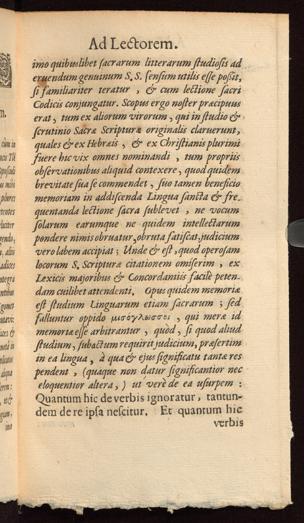 Ad Lectorem.
imo quibuslibet sacrarum litterarum studiosis ad
eruendum genuinum S.S. sensum utilis esse possit,
si familiariter teratur, & cum lectione sacri
Codicis conjungatur. Scopus ergo noster præcipuus
erat, tum ex aliorum virorum, qui in studio &
scrutinio Sacræ Scripturæ originalis claruerunt,
quales & ex Hebræis, & ex Christianis plurimi
fuere hic vix omnes nominandi, tum propriis
observationibus aliquid contexere, quod quidem
brevitate sua se commendet, suo tamen beneficio
memoriam in addiscenda Lingua sancta & fre-
quentanda lectione sacra sublevet, ne vocum
solarum earumque ne quidem intellectarum
pondere nimis obruatur, obruta fatiscat, judicium
vero labem accipiat; Unde & est, quod operosam
locorum S. Scripturæ citationem omiserim, ex
Lexicis majoribus & Concordantiis facile peten-
dam cuilibet attendenti. Opus quidem memoriæ
est studium Linguarum etiam sacrarum; sed
falluntur oppido μισόγλωσσοι, qui meræ id
memoriæ esse arbitrantur, quod, si quod aliud
studium, subactum requirit judicium, præsertim
in ea lingua, à qua & ejus significatu tanta res
pendent, (quaque non datur significantior nec
eloquentior altera,) ut verè de ea usurpem:
Quantum hic de verbis ignoratur, tantun-
dem de re ipsa nescitur. Et quantum hic
verbis